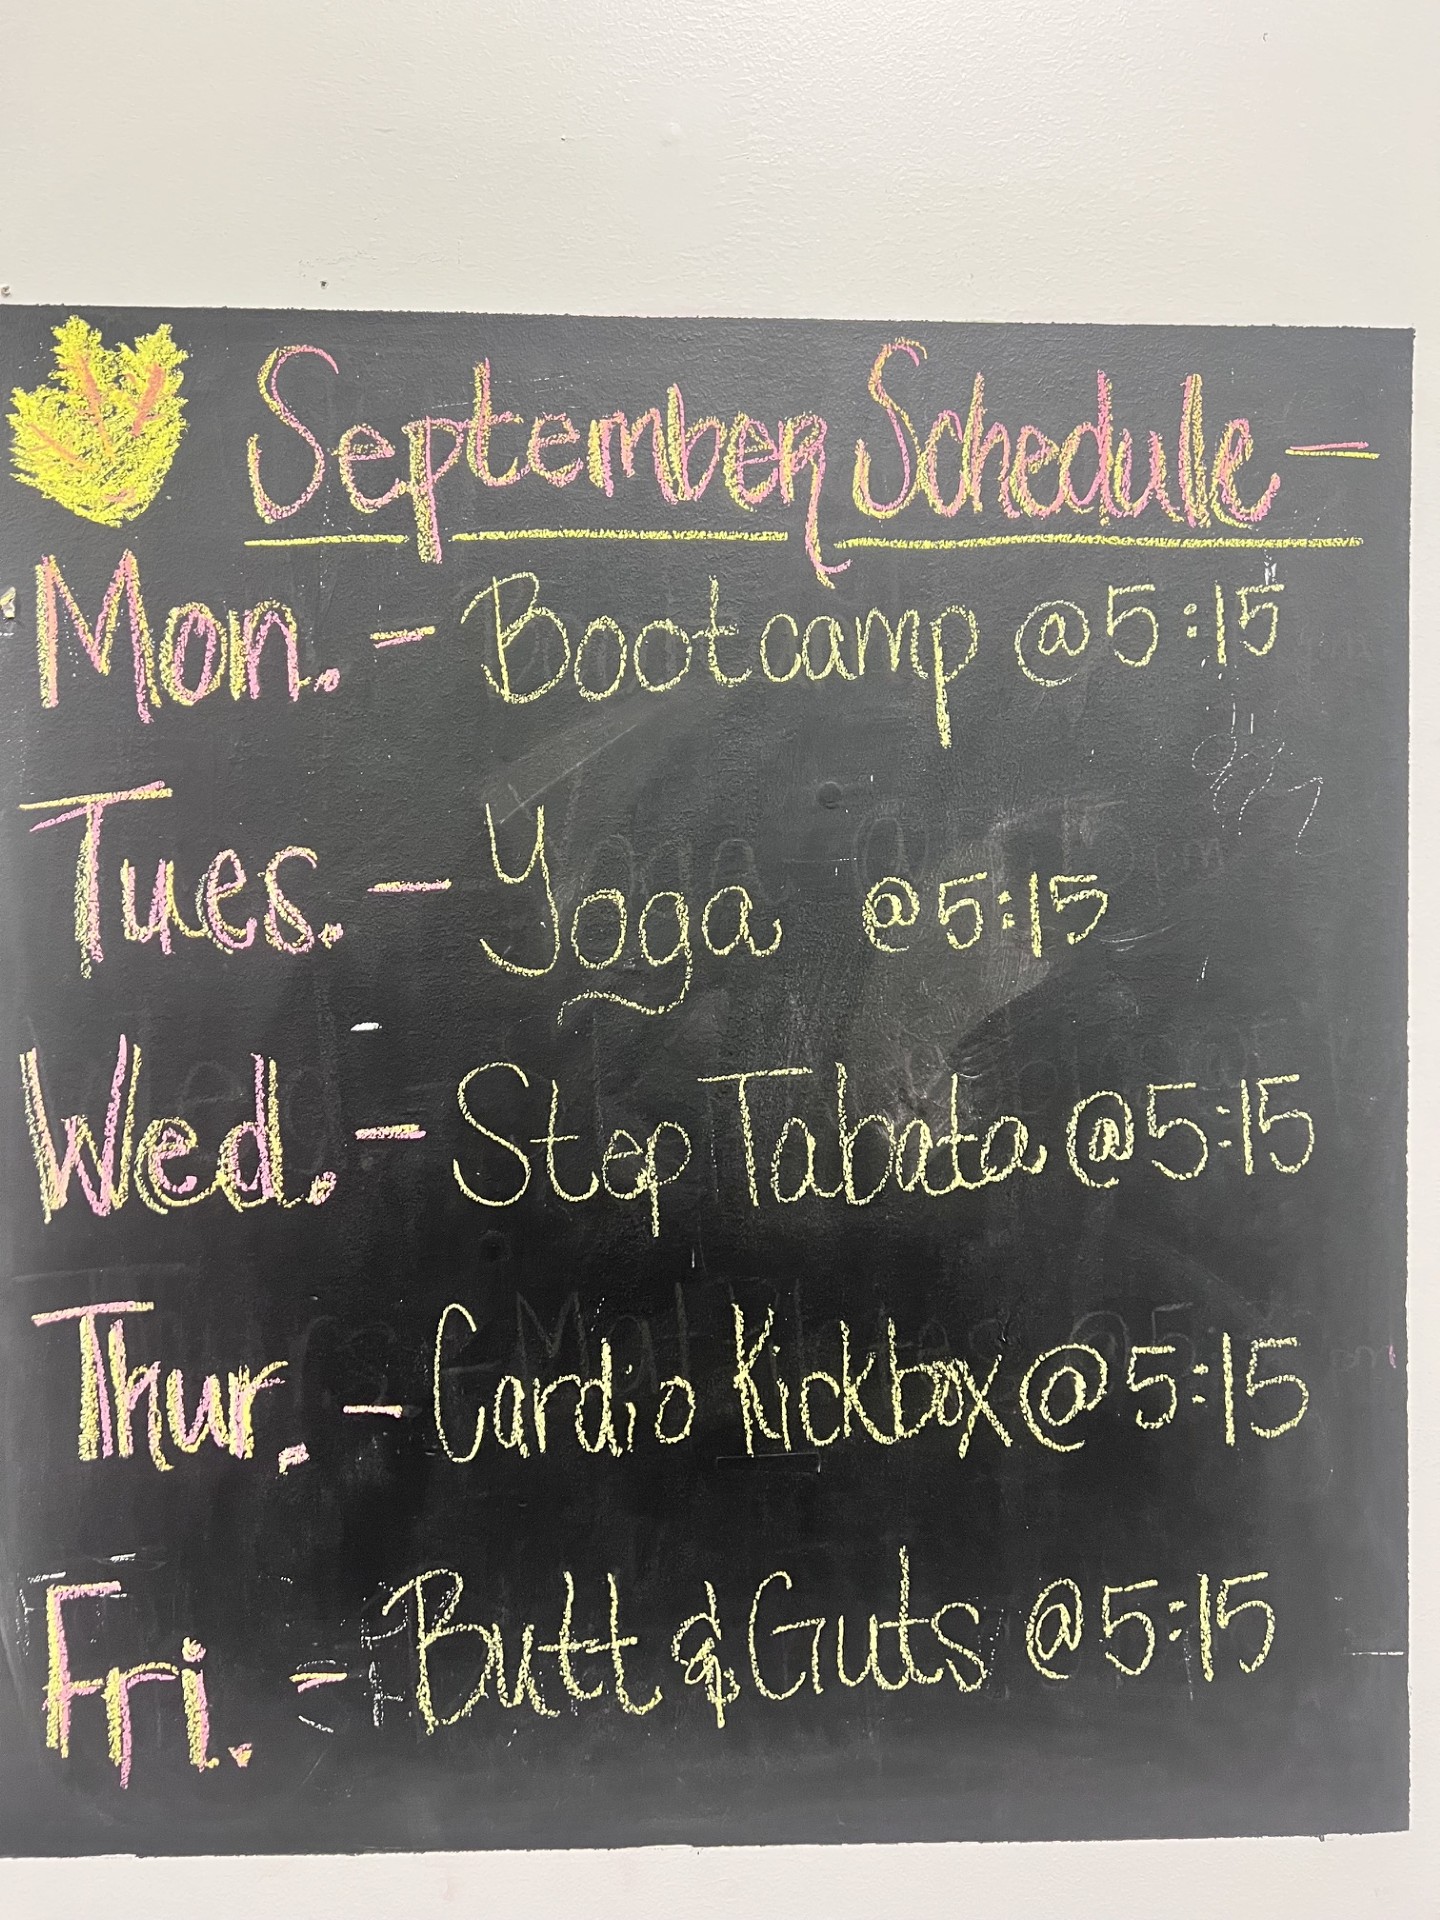 September Schedule -
Mon. - Bootcamp @ 5:15
Tues. - Yoga @ 5:15
Wed. - Step Tabata @ 5:15
Thur. - Cardio Kickbox @ 5:15
Fri. - Butt & Guts @ 5:15